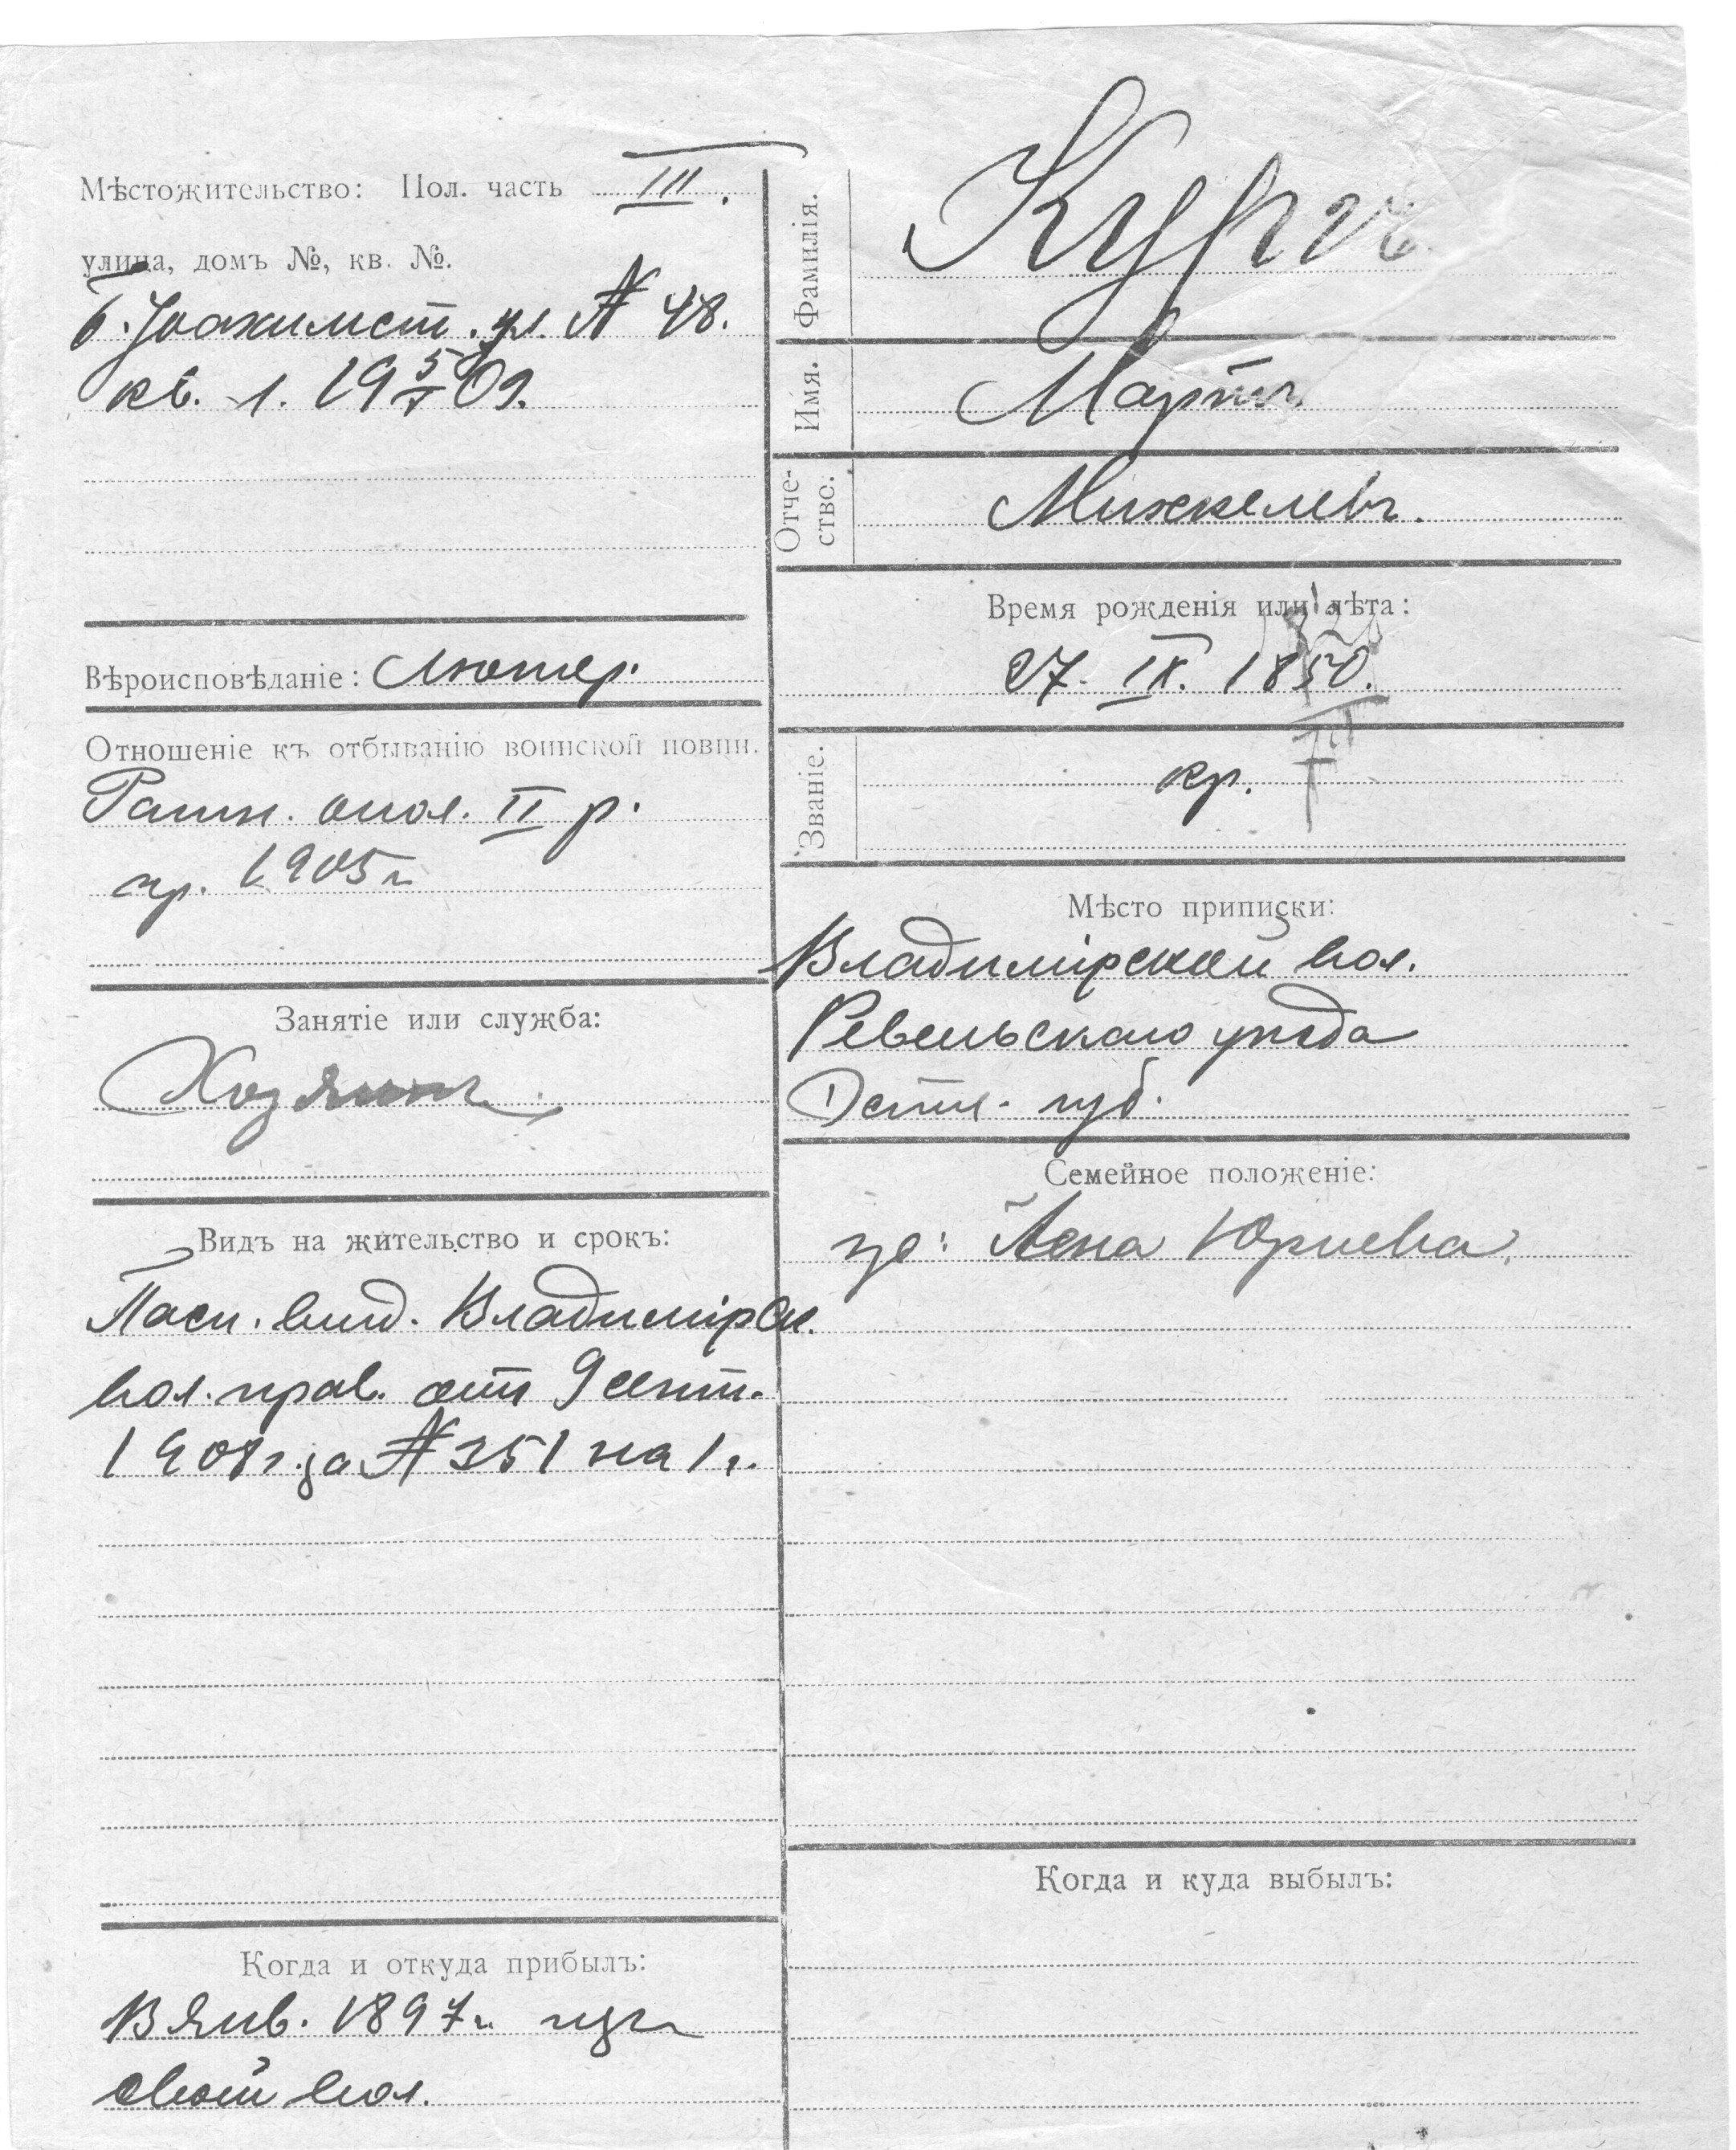 Мѣстожительство: Пол. часть III.
улица, домъ №, кв. №.
б. ул. № 48.
кв. 1. 19 5/V 09.
Вѣроисповѣданіе: Лютер.
Отношеніе къ отбыванію воинской повин.
Ратн. опол. II р.
пр. 1905 г
Занятіе или служба:
Хозяинъ
Видъ на жительство и срокъ:
Пасп. выд. Владимірск.
вол. прав. отъ 9 сент.
1908 г. за № 351 на 1 г.
Когда и откуда прибылъ:
В янв. 1897 г. изъ
своей вол.
Фамилія.
Имя. Мартъ
Отче-
ство. Михкелевъ.
Время рожденія или лѣта:
27. IX. 1850.
Званіе. кр.
Мѣсто приписки:
Владимірской вол.
Ревельскаго уѣзда
Эстл. губ.
Семейное положеніе:
Лена Юриева,
Когда и куда выбылъ: